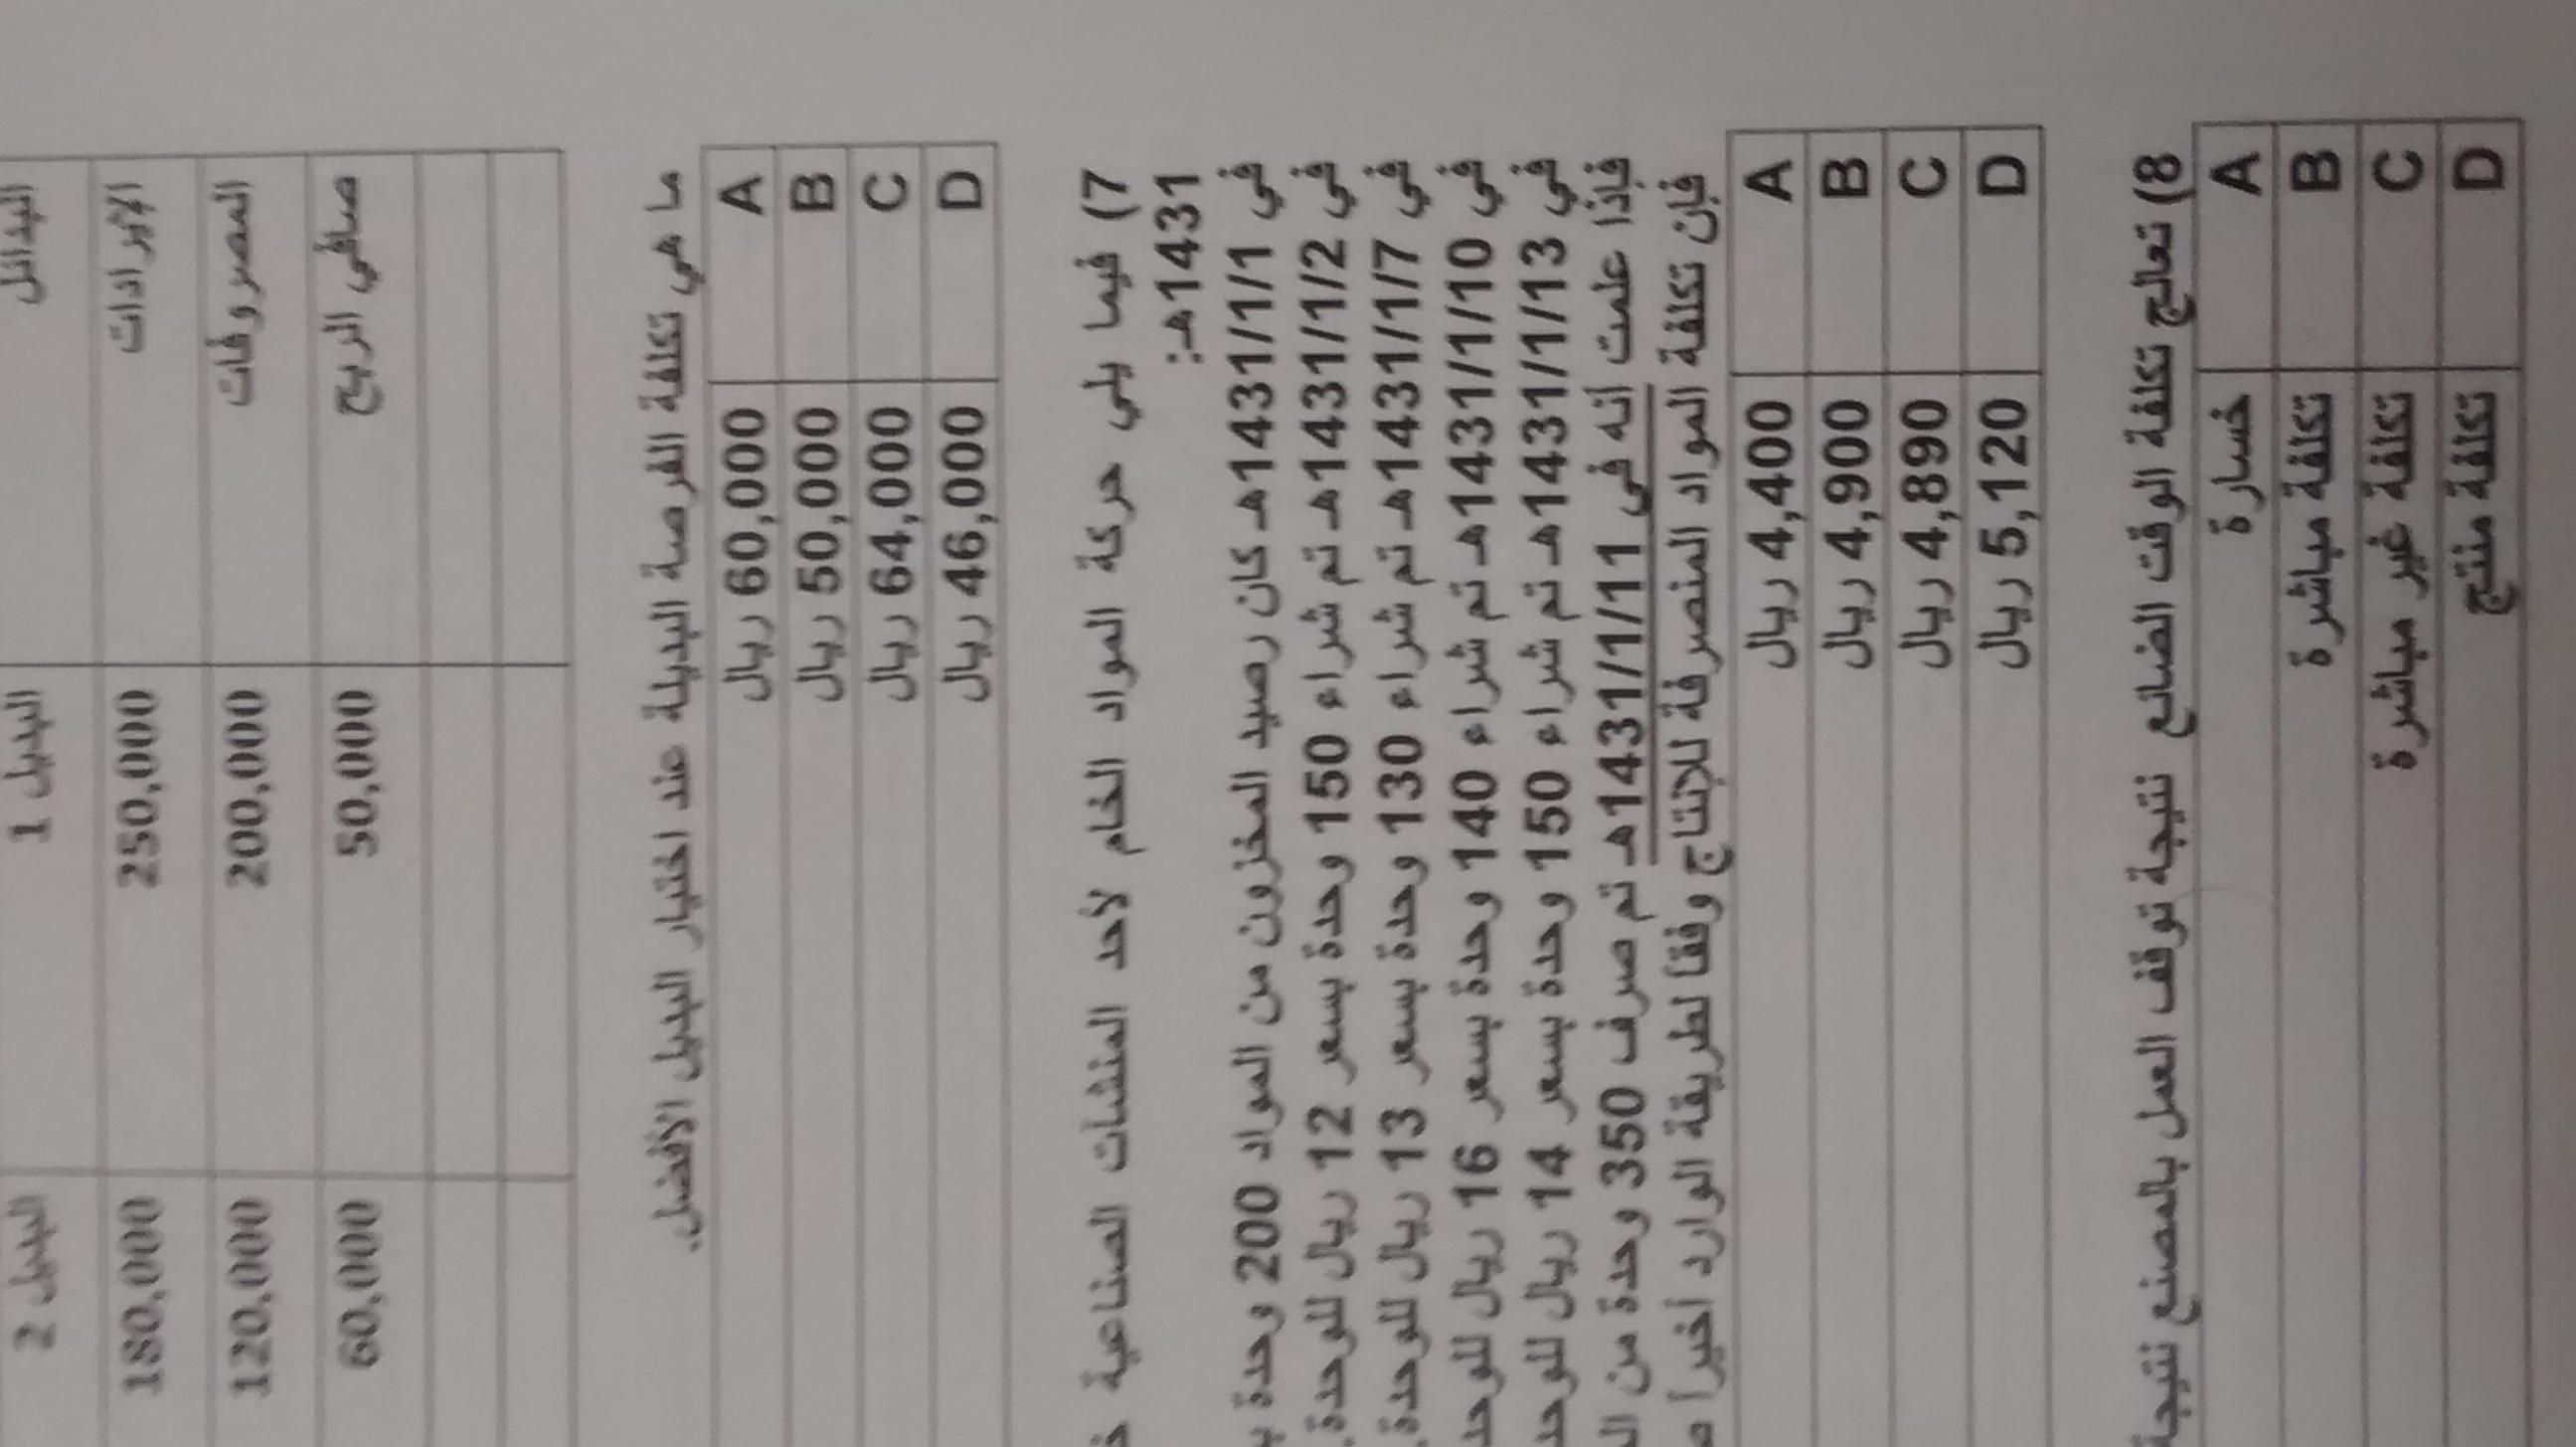 البدائل البديل 1 البديل 2
الإيرادات 250,000 180,000
المصروفات 200,000 120,000
صافي الربح 50,000 60,000
ما هي تكلفة الفرصة البديلة عند اختيار البديل الأفضل.
A 60,000 ريال
B 50,000 ريال
C 64,000 ريال
D 46,000 ريال
7) فيما يلي حركة المواد الخام لأحد المنشآت الصناعية
1431هـ:
في 1/1/1431هـ كان رصيد المخزون من المواد 200 وحدة
في 2/1/1431هـ تم شراء 150 وحدة بسعر 12 ريال للوحدة.
في 7/1/1431هـ تم شراء 130 وحدة بسعر 13 ريال للوحدة.
في 10/1/1431هـ تم شراء 140 وحدة بسعر 16 ريال
في 13/1/1431هـ تم شراء 150 وحدة بسعر 14 ريال
فإذا علمت أنه في 11/1/1431هـ تم صرف 350 وحدة من
فإن تكلفة المواد المنصرفة للإنتاج وفقا لطريقة الوارد أخيرا
A 4,400 ريال
B 4,900 ريال
C 4,890 ريال
D 5,120 ريال
8) تعالج تكلفة الوقت الضائع نتيجة توقف العمل بالمصنع نتيجة
A خسارة
B تكلفة مباشرة
C تكلفة غير مباشرة
D تكلفة منتج